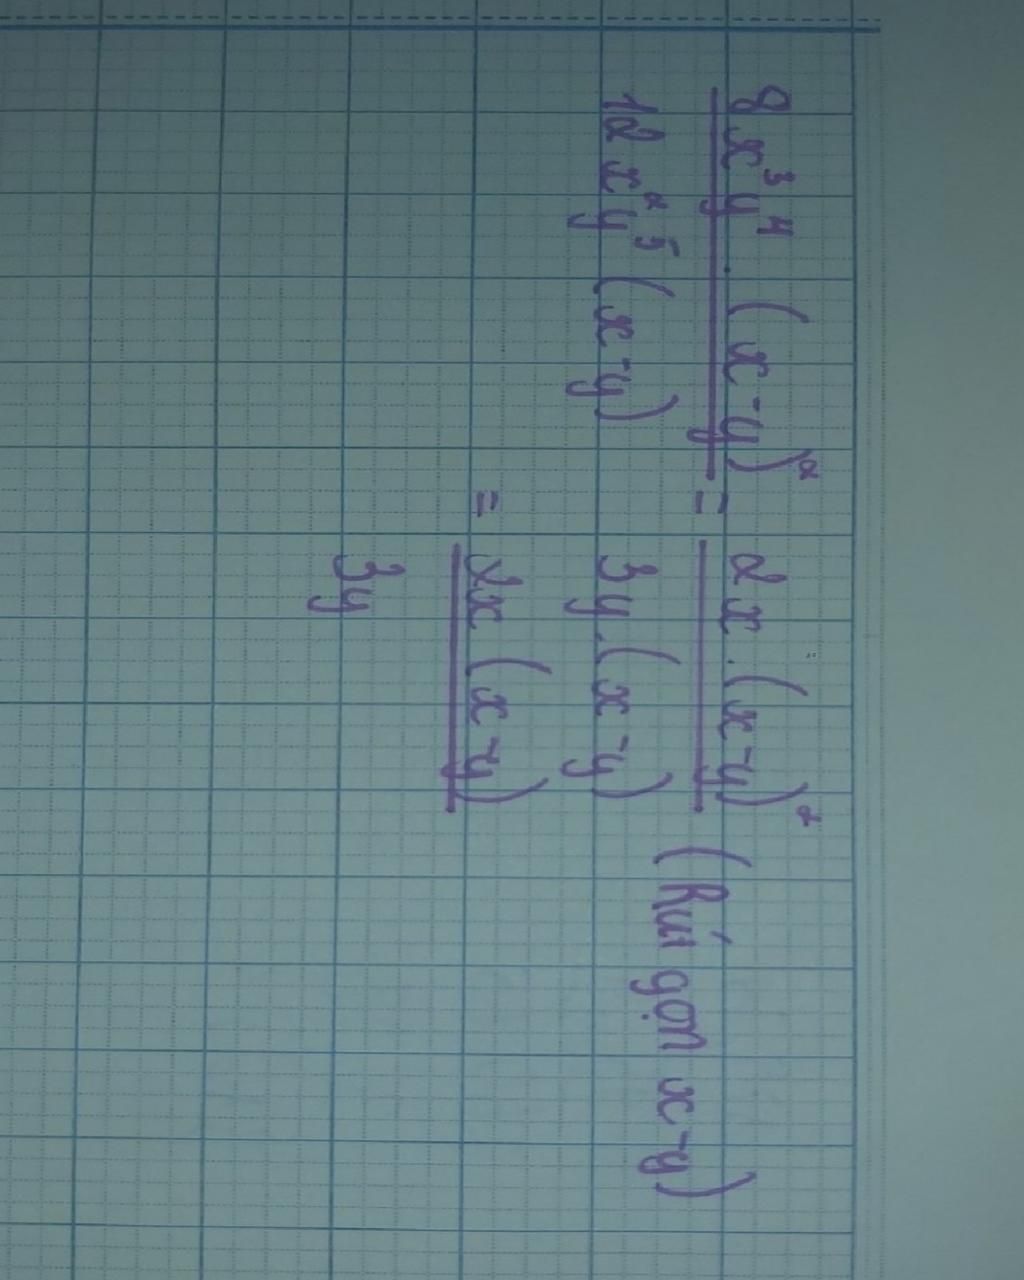 8x³y⁴.(x-y)² / 12x²y⁵(x-y) = 2x.(x-y)² / 3y.(x-y) (Rút gọn x-y)
= 2x(x-y) / 3y